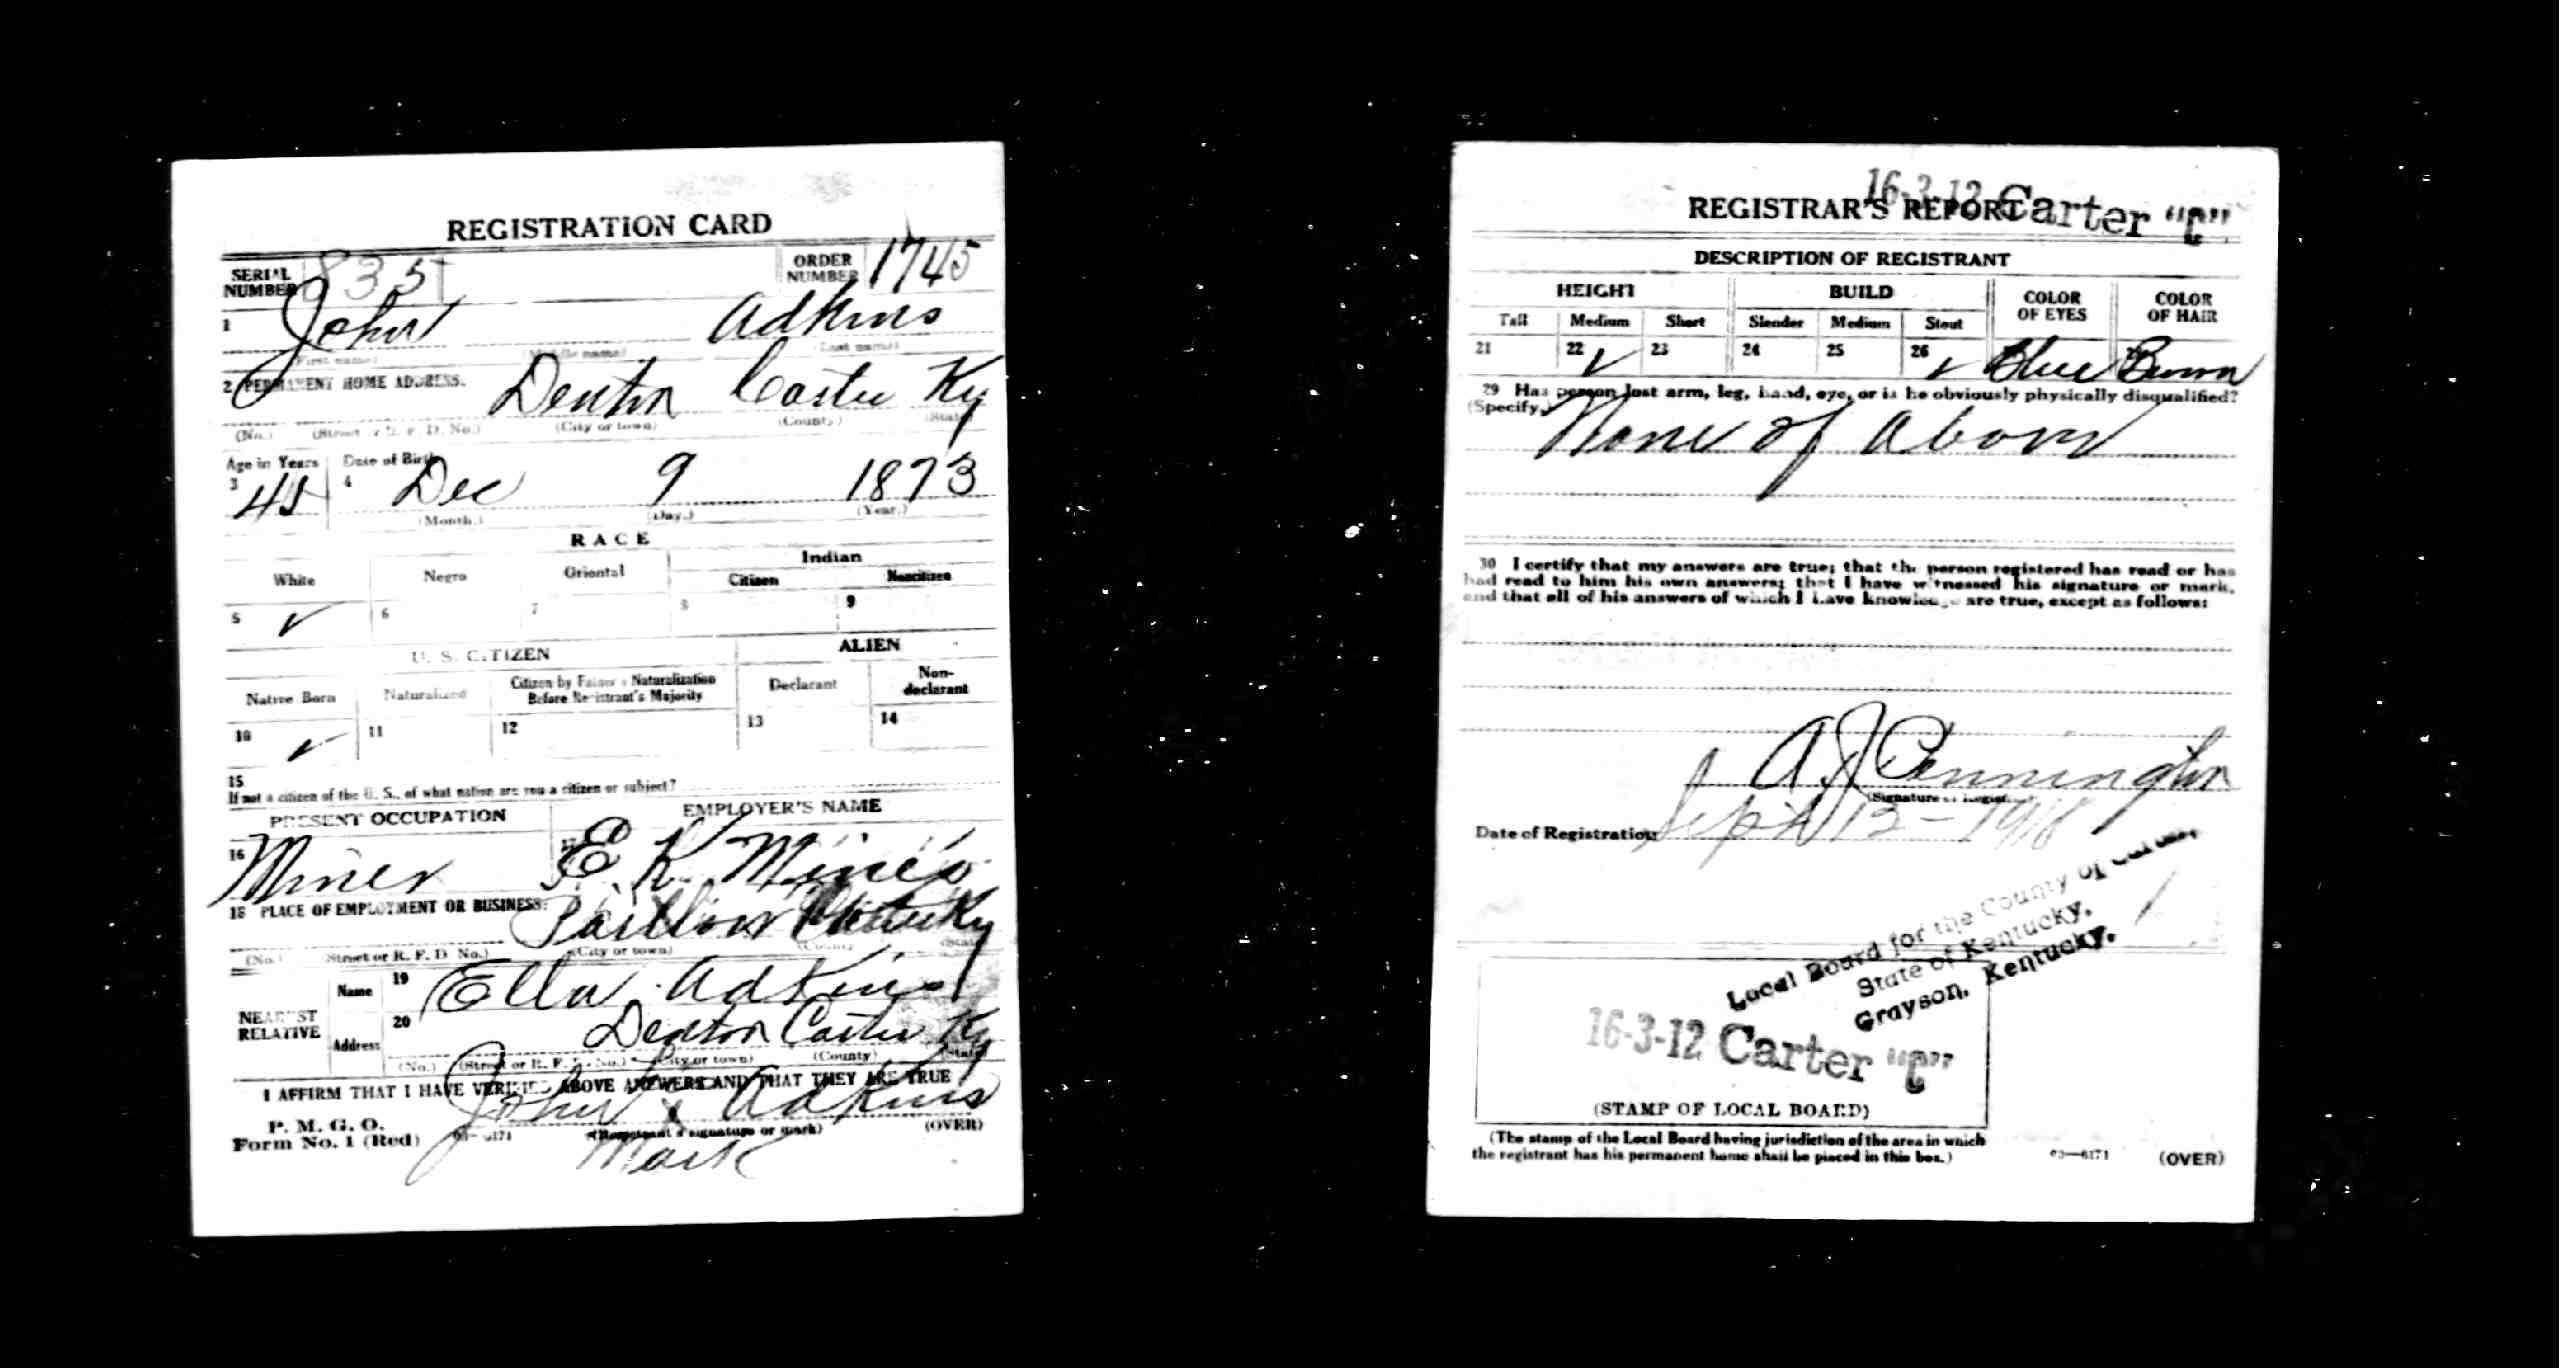 REGISTRATION CARD
SERIAL NUMBER 835 ORDER NUMBER 1745
1 John Adkins
(First name) (Middle name) (Last name)
2 PERMANENT HOME ADDRESS. Denton Carter Ky
(No.) (Street or R. F. D. No.) (City or town) (County) (State)
Age in Years Date of Birth
3 45 4 Dec 9 1873
(Month.) (Day.) (Year.)
RACE
White Negro Oriental Indian
Citizen Noncitizen
5 ✓ 6 7 8 9
U. S. CITIZEN ALIEN
Native Born Naturalized Citizen by Father's Naturalization Before Registrant's Majority Declarant Non-declarant
10 ✓ 11 12 13 14
15
If not a citizen of the U. S., of what nation are you a citizen or subject?
PRESENT OCCUPATION EMPLOYER'S NAME
16 Miner 17 E. K. Mines
18 PLACE OF EMPLOYMENT OR BUSINESS: Ky
(No.) Street or R. F. D. No.) (City or town) (County) (State)
NEAREST RELATIVE
Name 19 Ella Adkins
Address 20 Denton Carter Ky
(No.) (Street or R. F. D. No.) (City or town) (County) (State)
I AFFIRM THAT I HAVE VERIFIED ABOVE ANSWERS AND THAT THEY ARE TRUE
P. M. G. O.
Form No. 1 (Red) 03—6171 John X Adkins
(Registrant's signature or mark) (OVER)
Mark
16-3-12 Carter "C"
REGISTRAR'S REPORT
DESCRIPTION OF REGISTRANT
HEIGHT BUILD COLOR OF EYES COLOR OF HAIR
Tall Medium Short Slender Medium Stout
21 22 ✓ 23 24 25 26 ✓ Blue Brown
29 Has person lost arm, leg, hand, eye, or is he obviously physically disqualified?
(Specify.) None of Above
30 I certify that my answers are true; that the person registered has read or has
had read to him his own answers; that I have witnessed his signature or mark,
and that all of his answers of which I have knowledge are true, except as follows:
A J Pennington
(Signature of Registrar)
Date of Registration Sept 12 - 1918
Local Board for the County of Carter,
State of Kentucky.
Grayson, Kentucky.
16-3-12 Carter "C"
(STAMP OF LOCAL BOARD)
(The stamp of the Local Board having jurisdiction of the area in which
the registrant has his permanent home shall be placed in this box.)
03—6171 (OVER)